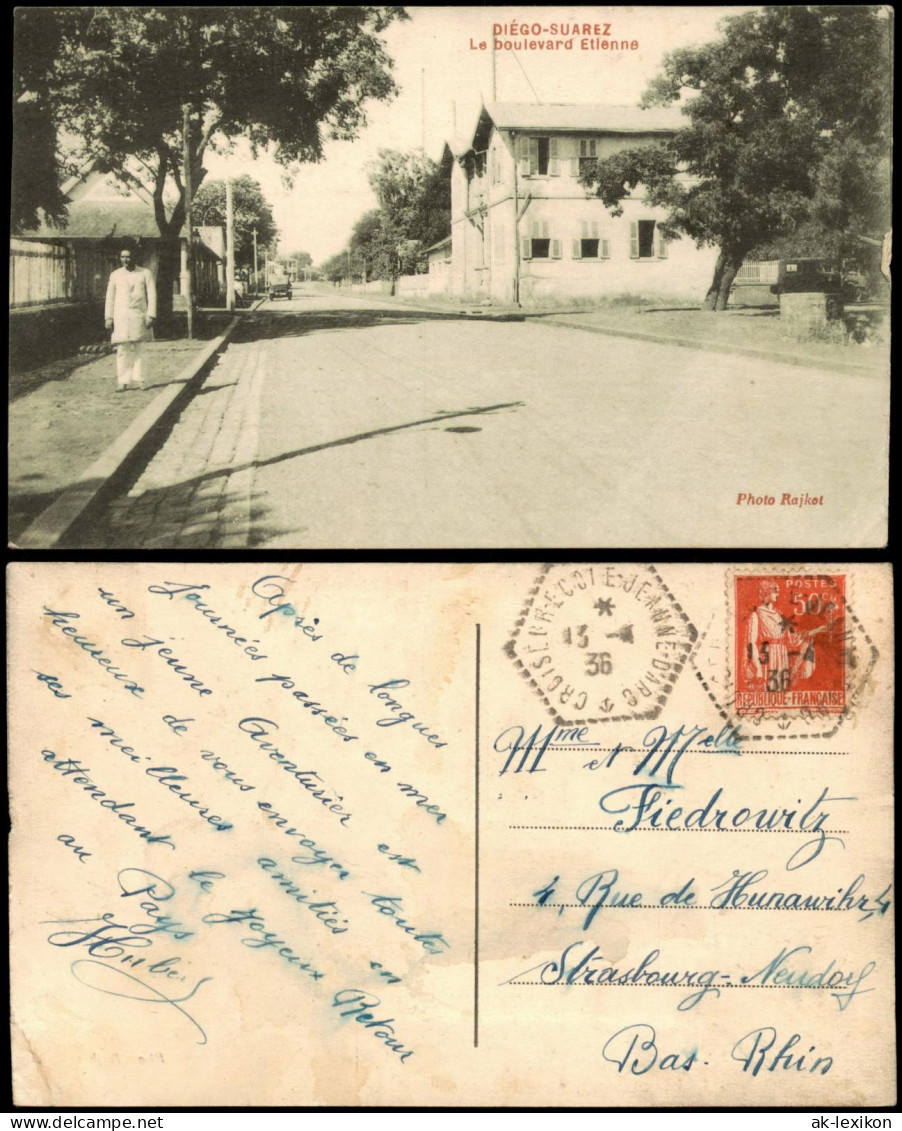 DIÉGO-SUAREZ
Le boulevard Etienne
Photo Rajkot
Après de longues
journées passées en mer
un jeune Aventurier est
heureux de vous envoyer toutes
ses meilleures amitiés en
attendant le joyeux Retour
au Pays
CROISEUR-ECOLE-JEANNE-D'ARC
13 -4
36
POSTES
50c
13 -4
36
REPUBLIQUE-FRANÇAISE
Mme et Melle
Fiedrowitz
4, Rue de Hunawihr, 4
Strasbourg-Neudorf
Bas-Rhin
ak-lexikon